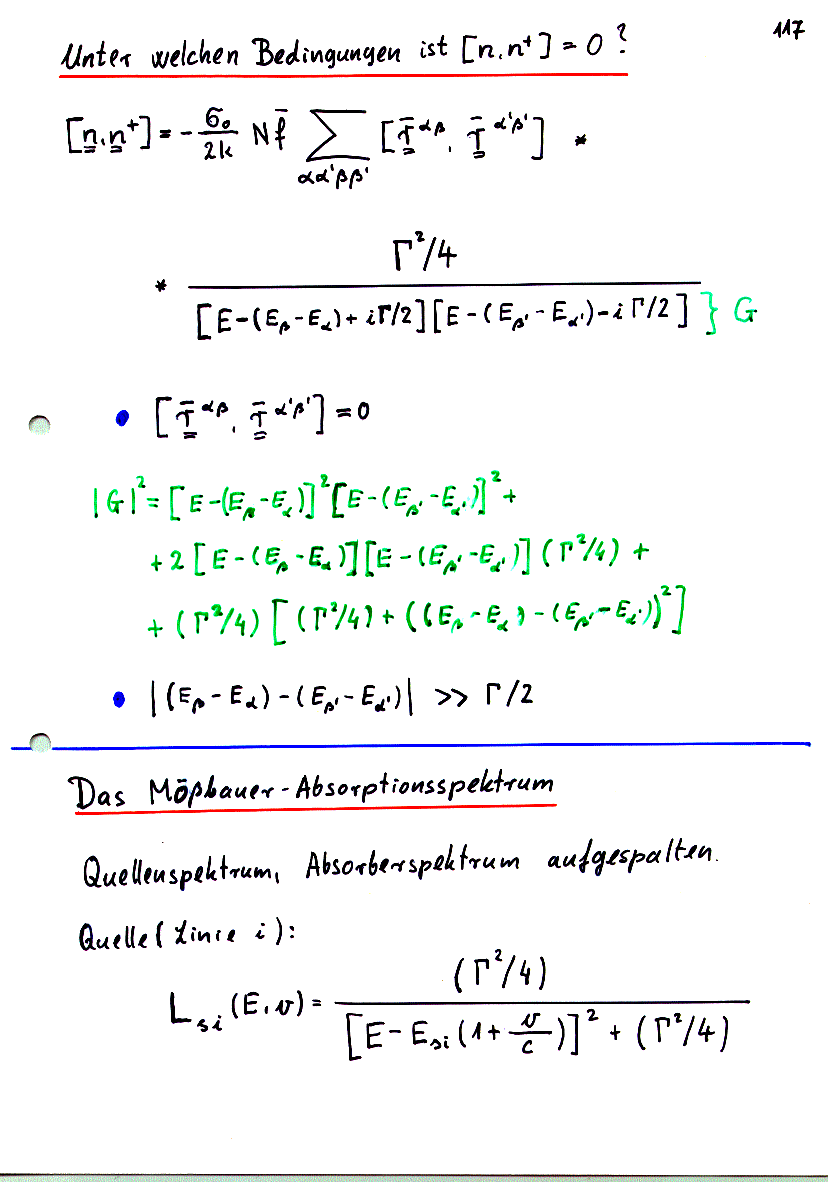 117
Unter welchen Bedingungen ist [n, n⁺] = 0 ?
[n, n⁺] = - σ₀/2k N f̄ ∑_{αα'ββ'} [T̄^{αβ}, T̄^{α'β'}] *
* Γ²/4 / [E-(E_β-E_α)+iΓ/2][E-(E_β'-E_α')-iΓ/2] } G
• [T̄^{αβ}, T̄^{α'β'}] = 0
|G|² = [E-(E_β-E_α)]²[E-(E_β'-E_α')]² +
+ 2 [E-(E_β-E_α)][E-(E_β'-E_α')] (Γ²/4) +
+ (Γ²/4) [(Γ²/4) + ((E_β-E_α) - (E_β'-E_α'))²]
• |(E_β-E_α)-(E_β'-E_α')| >> Γ/2
Das Mößbauer-Absorptionsspektrum
Quellenspektrum, Absorberspektrum aufgespalten.
Quelle (Linie i):
L_{si} (E, v) = (Γ²/4) / [E - E_{si} (1 + v/c)]² + (Γ²/4)